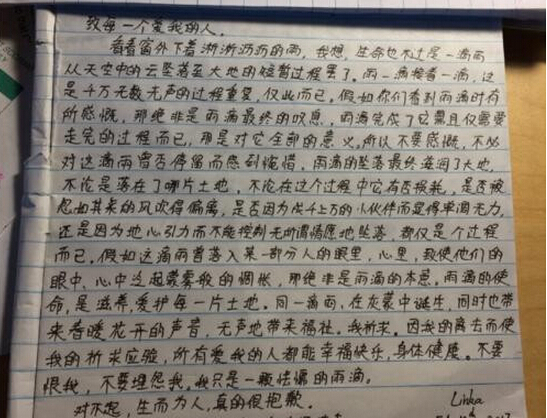 致每一个爱我的人，
看看窗外下着淅淅沥沥的雨，我想，生命也不过是一滴雨
从天空中的云坠落至大地的短暂过程罢了。雨一滴接着一滴，这
是千万无数无声的过程重复，仅此而已。假如你们看到雨滴时有
所感慨，那绝非是雨滴最终的叹息，雨滴完成了它票且仅需要
走完的过程而已，那是对它全部的意义。所以不要感慨，不必
对这滴雨曾否停留而感到惋惜。雨滴的坠落最终滋润了大地，
不论是落在了哪片土地，不论在这个过程中它有否损耗，是否被
忽如其来的风吹得偏离，是否因为成千上万的小伙伴而显得单调无力，
还是因为地心引力而不能控制无所谓情愿地坠落，都仅是个过程
而已。假如这滴雨曾落入某一部分人的眼里，心里，致使他们的
眼中、心中泛起蒙雾般的惆怅，那绝非是雨滴的本意。雨滴的使
命，是滋养，爱护每一片土地。同一滴雨，在灰蒙中诞生，同时也带
来春暖花开的声音，无声地带来福祉。我祈求。因我的离去而使
我的祈求应验，所有爱我的人都能幸福快乐，身体健康。不要
恨我，不要埋怨我，我只是一颗怯懦的雨滴。
对不起，生而为人，真的很抱歉。
Linka